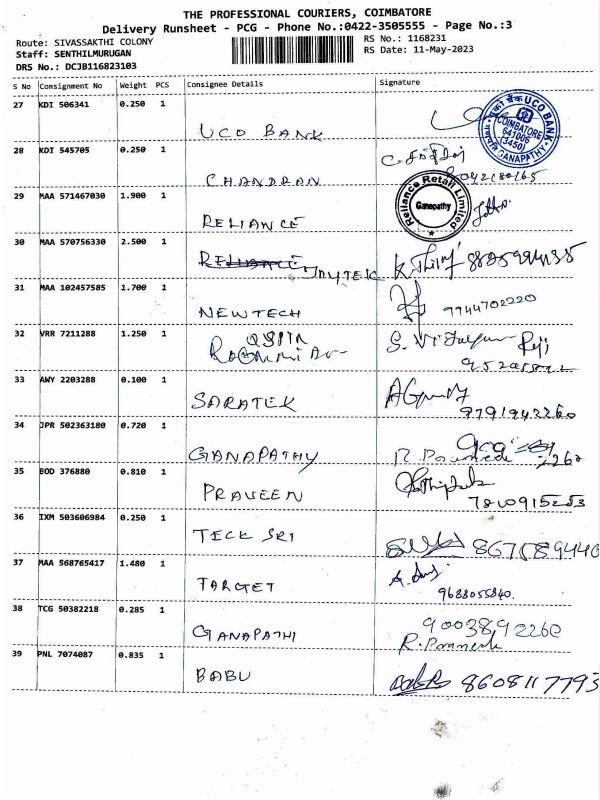 THE PROFESSIONAL COURIERS, COIMBATORE
Delivery Runsheet - PCG - Phone No.:0422-3505555 - Page No.:3
Route: SIVASSAKTHI COLONY
Staff: SENTHILMURUGAN
DRS No.: DCJB116823103
RS No.: 1168231
RS Date: 11-May-2023
S No Consignment No Weight PCS Consignee Details Signature
27 KDI 506341 0.250 1
UCO BANK
UCO BANK
COIMBATORE
641006
(3450)
GANAPATHY
28 KDI 545705 0.250 1
CHANDRAN
29 MAA 571467030 1.900 1
RELIANCE
Reliance Retail Limited
Ganapathy
30 MAA 570756330 2.500 1
RELIANCE
31 MAA 102457585 1.700 1
NEWTECH 9944702220
32 VRR 7211288 1.250 1
33 AWY 2203288 0.100 1
SARATEK 9791942260
34 JPR 502363180 0.720 1
GANAPATHY
35 BOD 376880 0.810 1
PRAVEEN
36 IXM 503606984 0.250 1
TECK SRI
37 MAA 568765417 1.480 1
TARGET 9688055840.
38 TCG 50382218 0.285 1
GANAPATHI 9003892260
39 PNL 7074087 0.835 1
BABU 8608117793